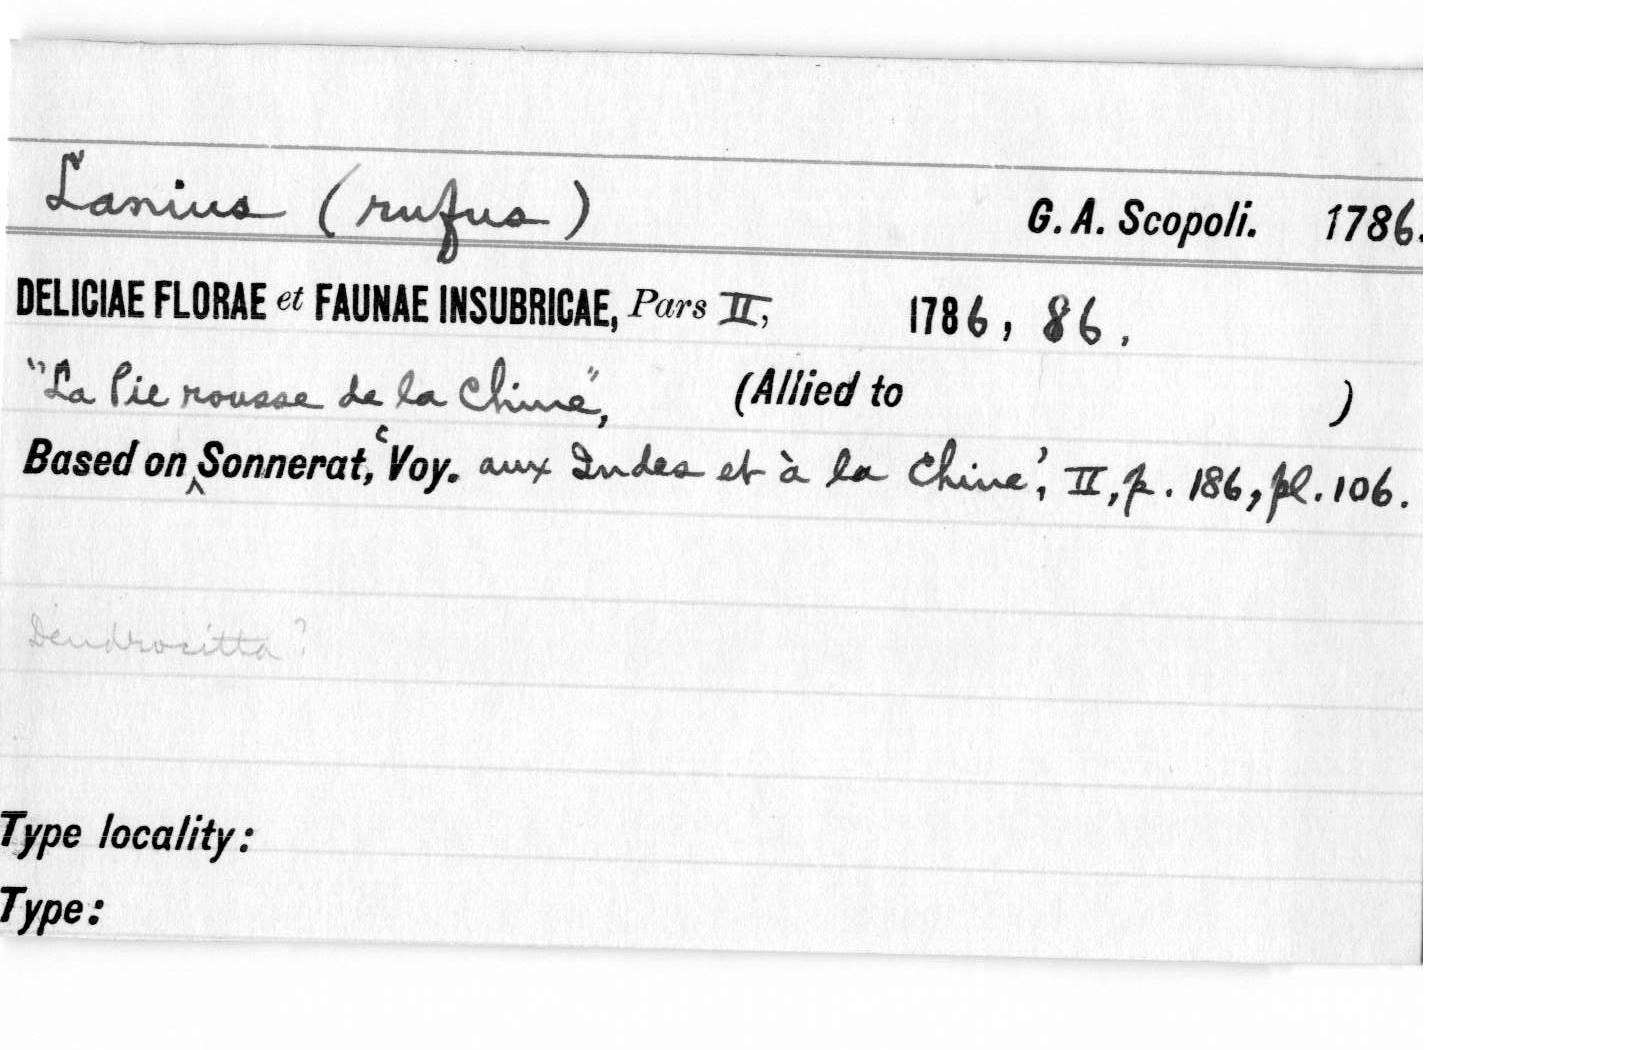 Lanius (rufus) G. A. Scopoli. 1786.
DELICIAE FLORAE et FAUNAE INSUBRICAE, Pars II, 1786, 86.
"La Pie rousse de la Chine", (Allied to )
Based on ‸ Sonnerat, ‘Voy. aux Indes et à la Chine’, II, p. 186, pl. 106.
Dendrocitta?
Type locality:
Type: